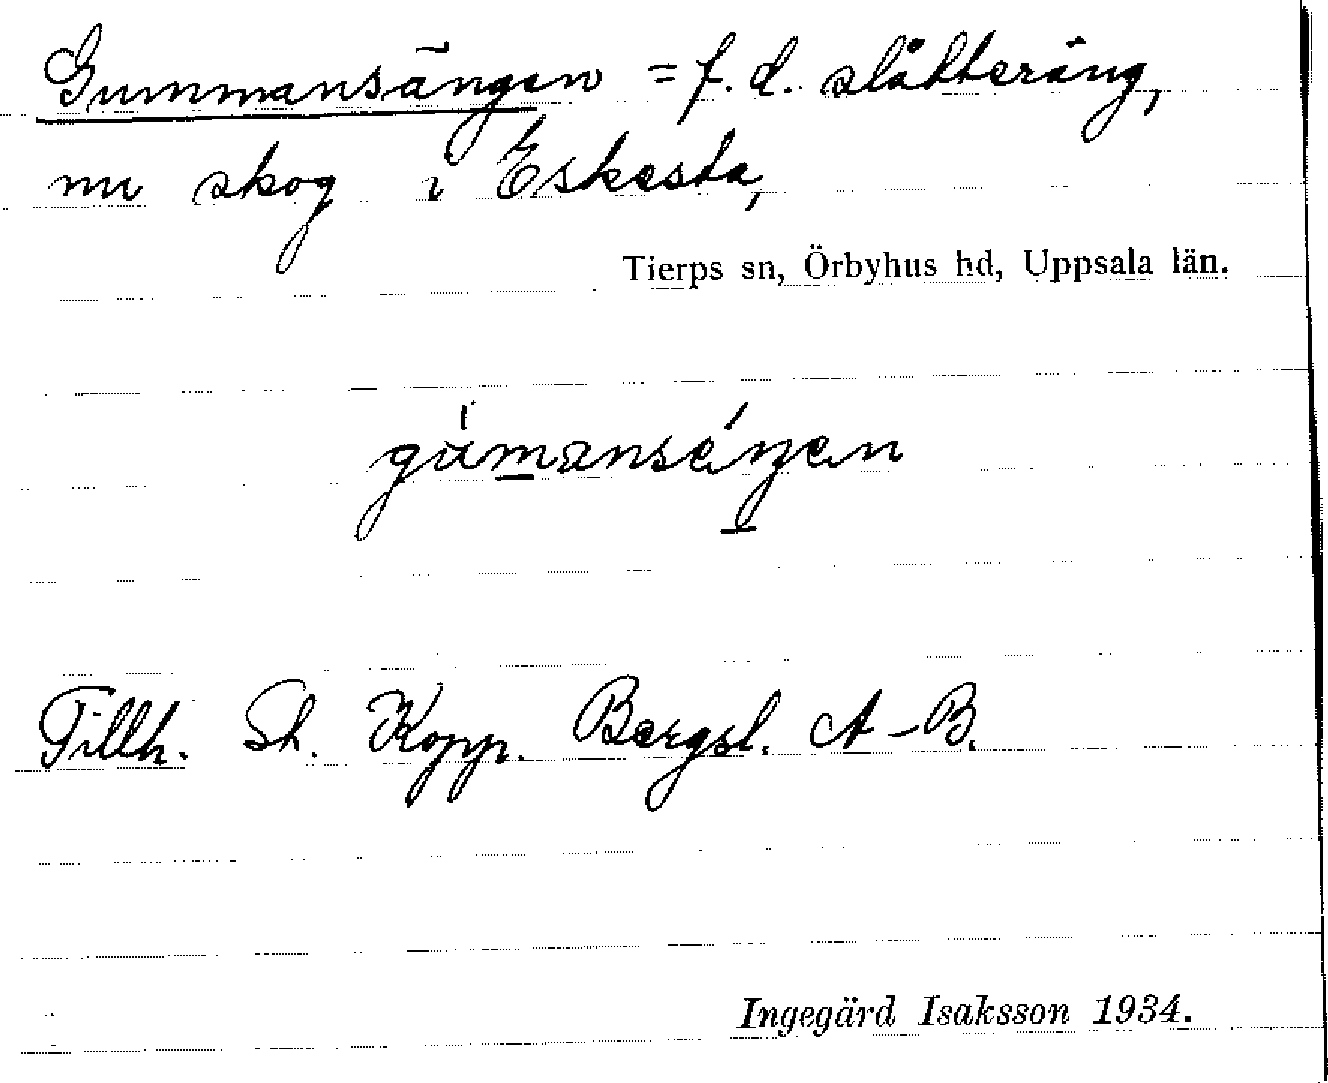 Gummansängen = f.d. slåtteräng,
nu skog i Eskesta,
Tierps sn, Örbyhus hd, Uppsala län.
Tillh. St. Kopp. Bergsl. A-B.
Ingegärd Isaksson 1934.